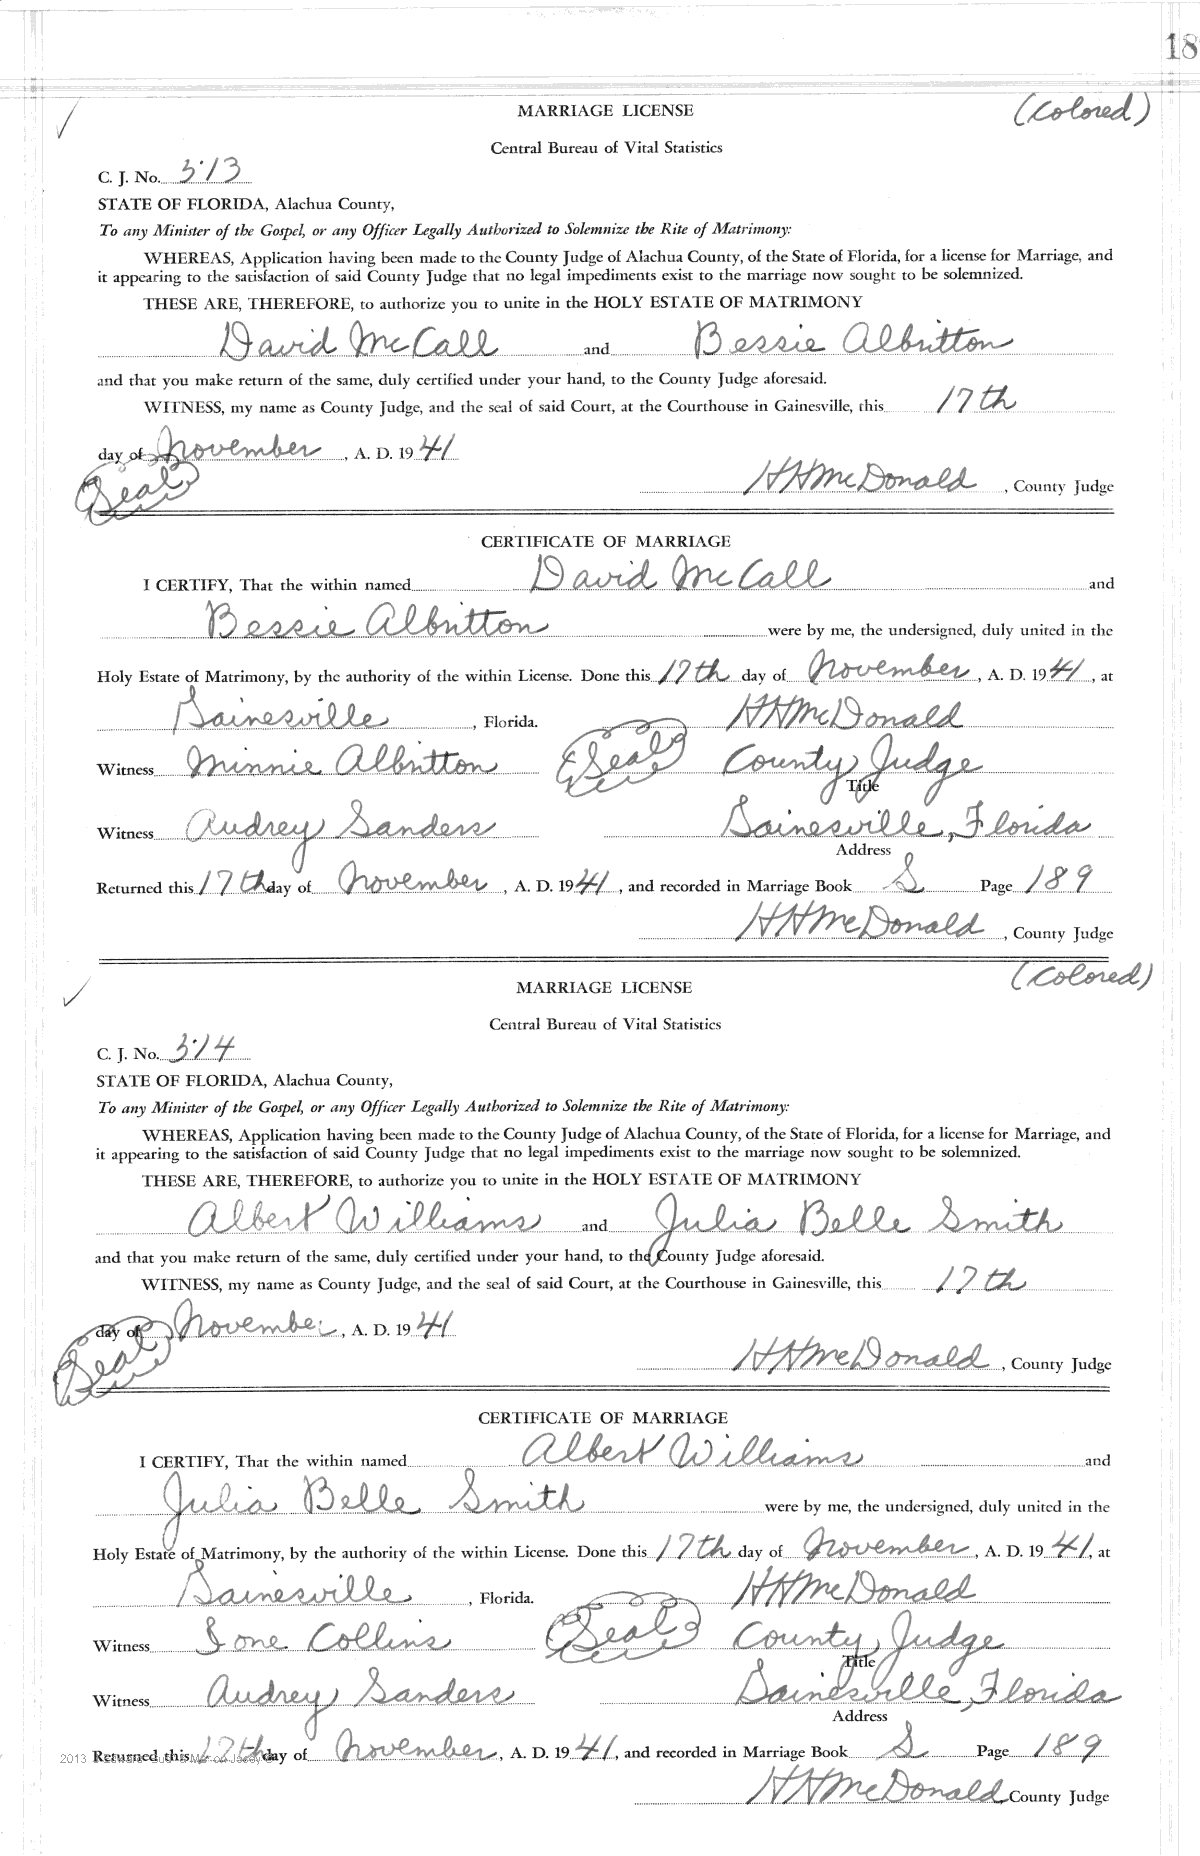 18
MARRIAGE LICENSE (Colored)
Central Bureau of Vital Statistics
C. J. No. 513
STATE OF FLORIDA, Alachua County,
To any Minister of the Gospel, or any Officer Legally Authorized to Solemnize the Rite of Matrimony:
WHEREAS, Application having been made to the County Judge of Alachua County, of the State of Florida, for a license for Marriage, and
it appearing to the satisfaction of said County Judge that no legal impediments exist to the marriage now sought to be solemnized.
THESE ARE, THEREFORE, to authorize you to unite in the HOLY ESTATE OF MATRIMONY
David McCall and Bessie Albritton
and that you make return of the same, duly certified under your hand, to the County Judge aforesaid.
WITNESS, my name as County Judge, and the seal of said Court, at the Courthouse in Gainesville, this 17th
day of November, A. D. 1941
(Seal) HHMcDonald, County Judge
CERTIFICATE OF MARRIAGE
I CERTIFY, That the within named David McCall and
Bessie Albritton were by me, the undersigned, duly united in the
Holy Estate of Matrimony, by the authority of the within License. Done this 17th day of November, A. D. 1941, at
Gainesville, Florida. HHMcDonald
Witness Minnie Albritton (Seal) County Judge
Title
Witness Audrey Sanders Gainesville, Florida
Address
Returned this 17th day of November, A. D. 1941, and recorded in Marriage Book S Page 189
HHMcDonald, County Judge
(Colored)
MARRIAGE LICENSE
Central Bureau of Vital Statistics
C. J. No. 514
STATE OF FLORIDA, Alachua County,
To any Minister of the Gospel, or any Officer Legally Authorized to Solemnize the Rite of Matrimony:
WHEREAS, Application having been made to the County Judge of Alachua County, of the State of Florida, for a license for Marriage, and
it appearing to the satisfaction of said County Judge that no legal impediments exist to the marriage now sought to be solemnized.
THESE ARE, THEREFORE, to authorize you to unite in the HOLY ESTATE OF MATRIMONY
Albert Williams and Julia Belle Smith
and that you make return of the same, duly certified under your hand, to the County Judge aforesaid.
WITNESS, my name as County Judge, and the seal of said Court, at the Courthouse in Gainesville, this 17th
day of November, A. D. 1941
(Seal) HHMcDonald, County Judge
CERTIFICATE OF MARRIAGE
I CERTIFY, That the within named Albert Williams and
Julia Belle Smith were by me, the undersigned, duly united in the
Holy Estate of Matrimony, by the authority of the within License. Done this 17th day of November, A. D. 1941, at
Gainesville, Florida. HHMcDonald
Witness Ione Collins (Seal) County Judge
Title
Witness Audrey Sanders Gainesville, Florida
Address
2013
Returned this 17th day of November, A. D. 1941, and recorded in Marriage Book S Page 189
HHMcDonald County Judge